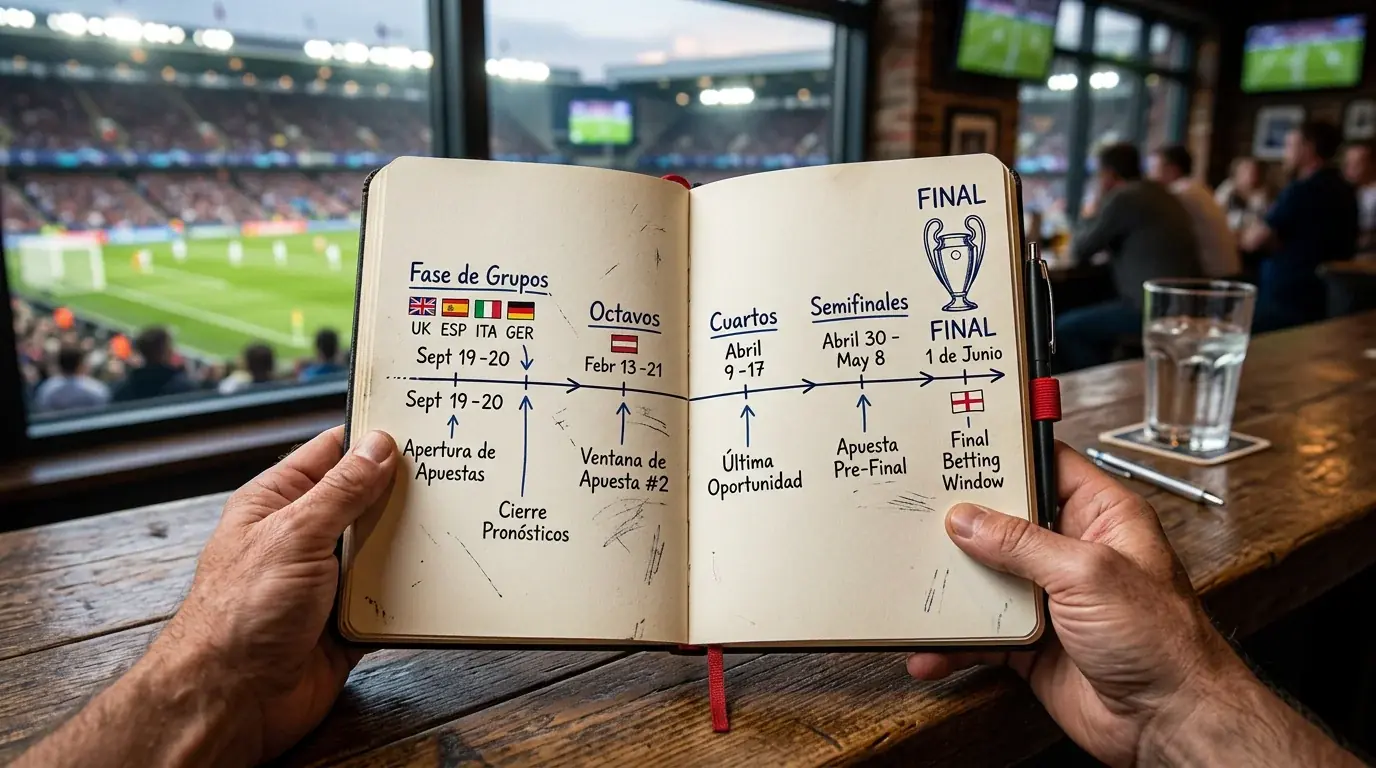 Fase de Grupos
UK ESP ITA GER
Sept 19-20
Sept 19-20
Apertura de
Apuestas
Cierre
Pronósticos
Octavos
Febr 13-21
Ventana de
Apuesta #2
Cuartos
Abril
9-17
Última
Oportunidad
Semifinales
Abril 30 -
May 8
Apuesta
Pre-Final
FINAL
FINAL
1 de Junio
Final
Betting
Window